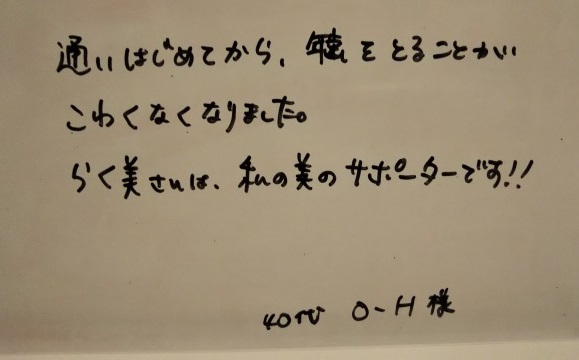 通いはじめてから、年齢をとることが
こわくなくなりました。
らく美さんは、私の美のサポーターです!!
40代 O-H 様